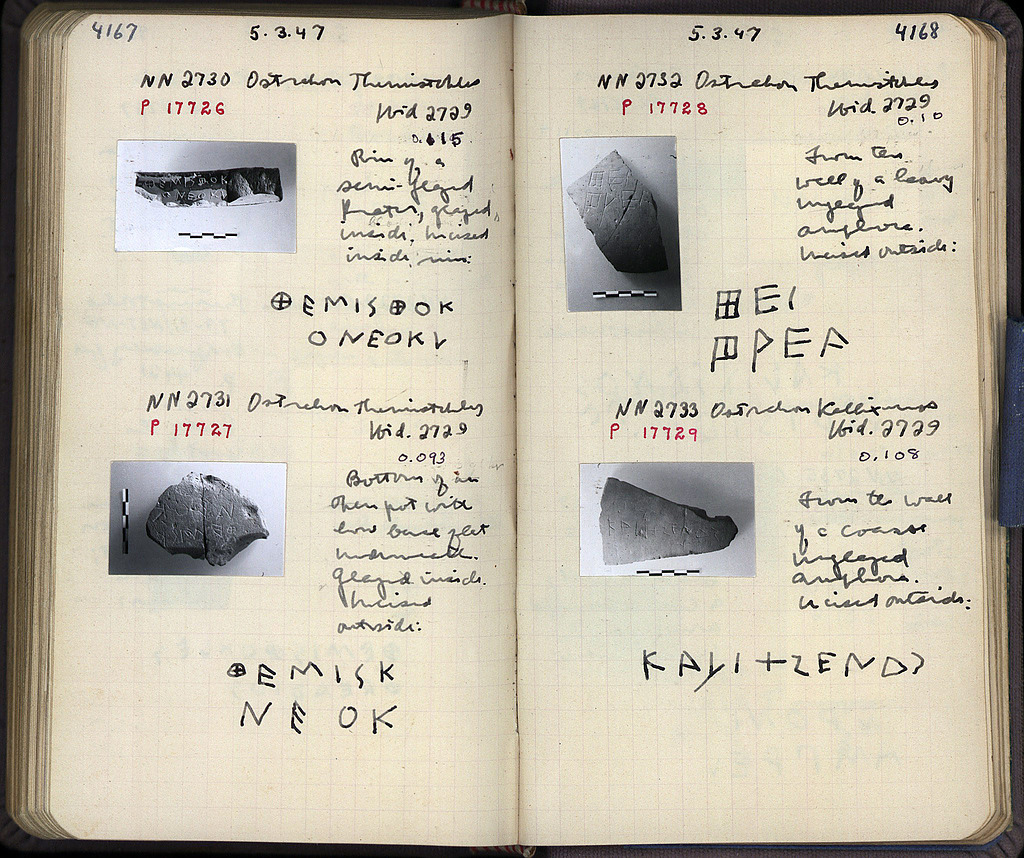 4167
5.3.47
NN 2730 Ostrakon Themistokles
P 17726
Ibid 2729
0.115
Rim of a
semi-glazed
krater, glazed
inside. Incised
inside rim:
⊕EMISⴲOK
ONEOKV
NN 2731 Ostrakon Themistokles
P 17727
Ibid. 2729
0.093
Bottom of an
open pot with
low base flat
underneath.
Glazed inside.
Incised
outside:
⊕EMISK
NE OK
5.3.47
4168
NN 2732 Ostrakon Themistokles
P 17728
Ibid 2729
0.10
From the
wall of a heavy
unglazed
amphora.
Incised outside:
⊞EI
PEA
NN 2733 Ostrakon Kallixenos
P 17729
Ibid. 2729
0.108
From the wall
of a coarse
unglazed
amphora.
Incised outside: